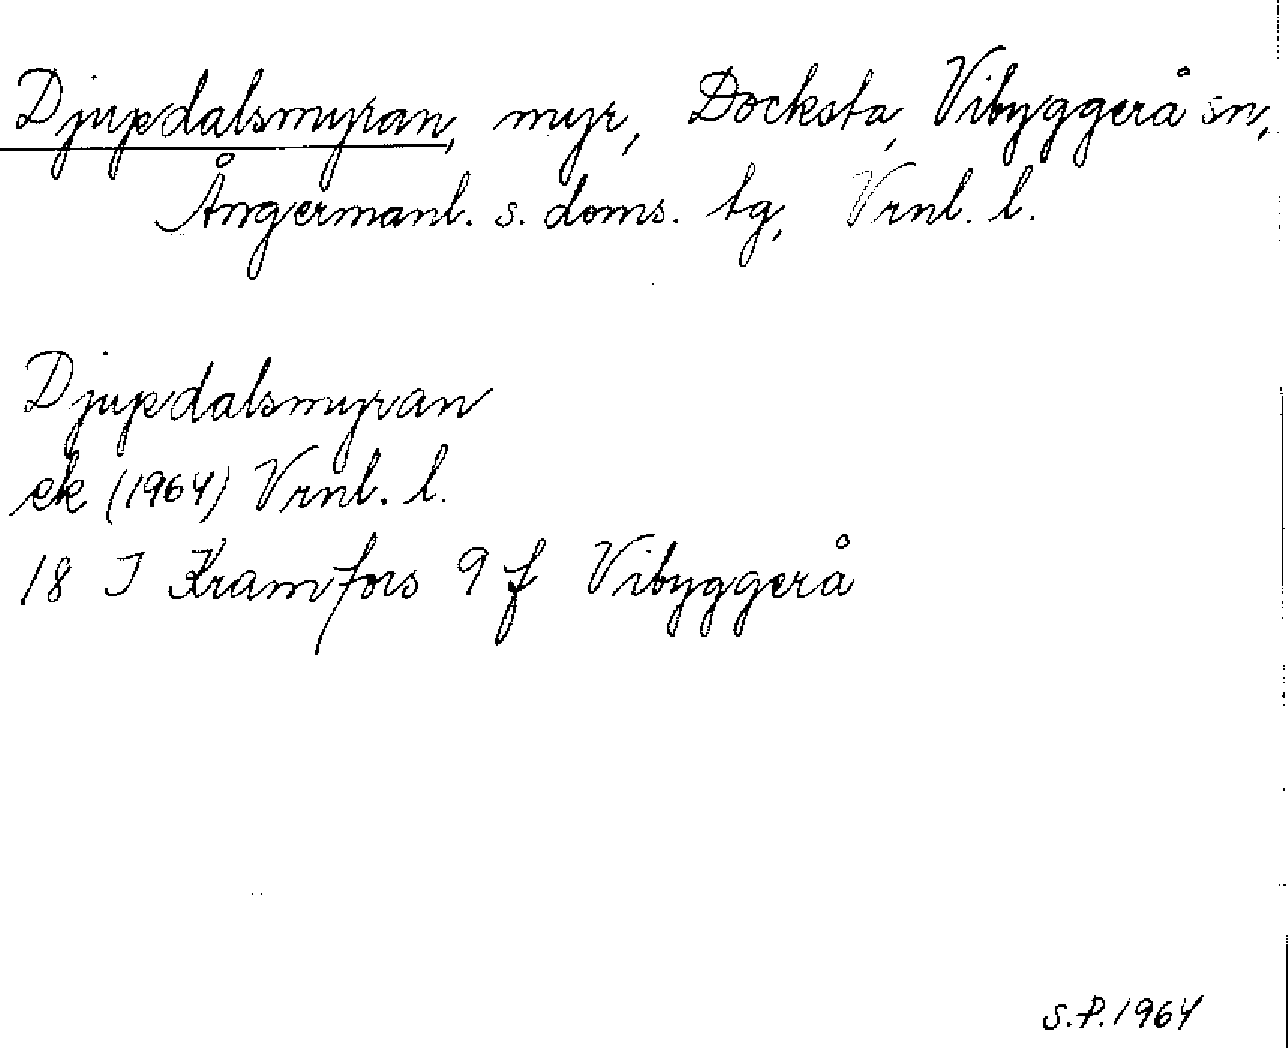 Djupdalsmyran, myr, Docksta, Vibyggerå sn,
Ångermanl. s. doms. tg, Vrnl. l.
Djupdalsmyran
ek (1964) Vrnl. l.
18 J Kramfors 9 f Vibyggerå
S.P. 1964